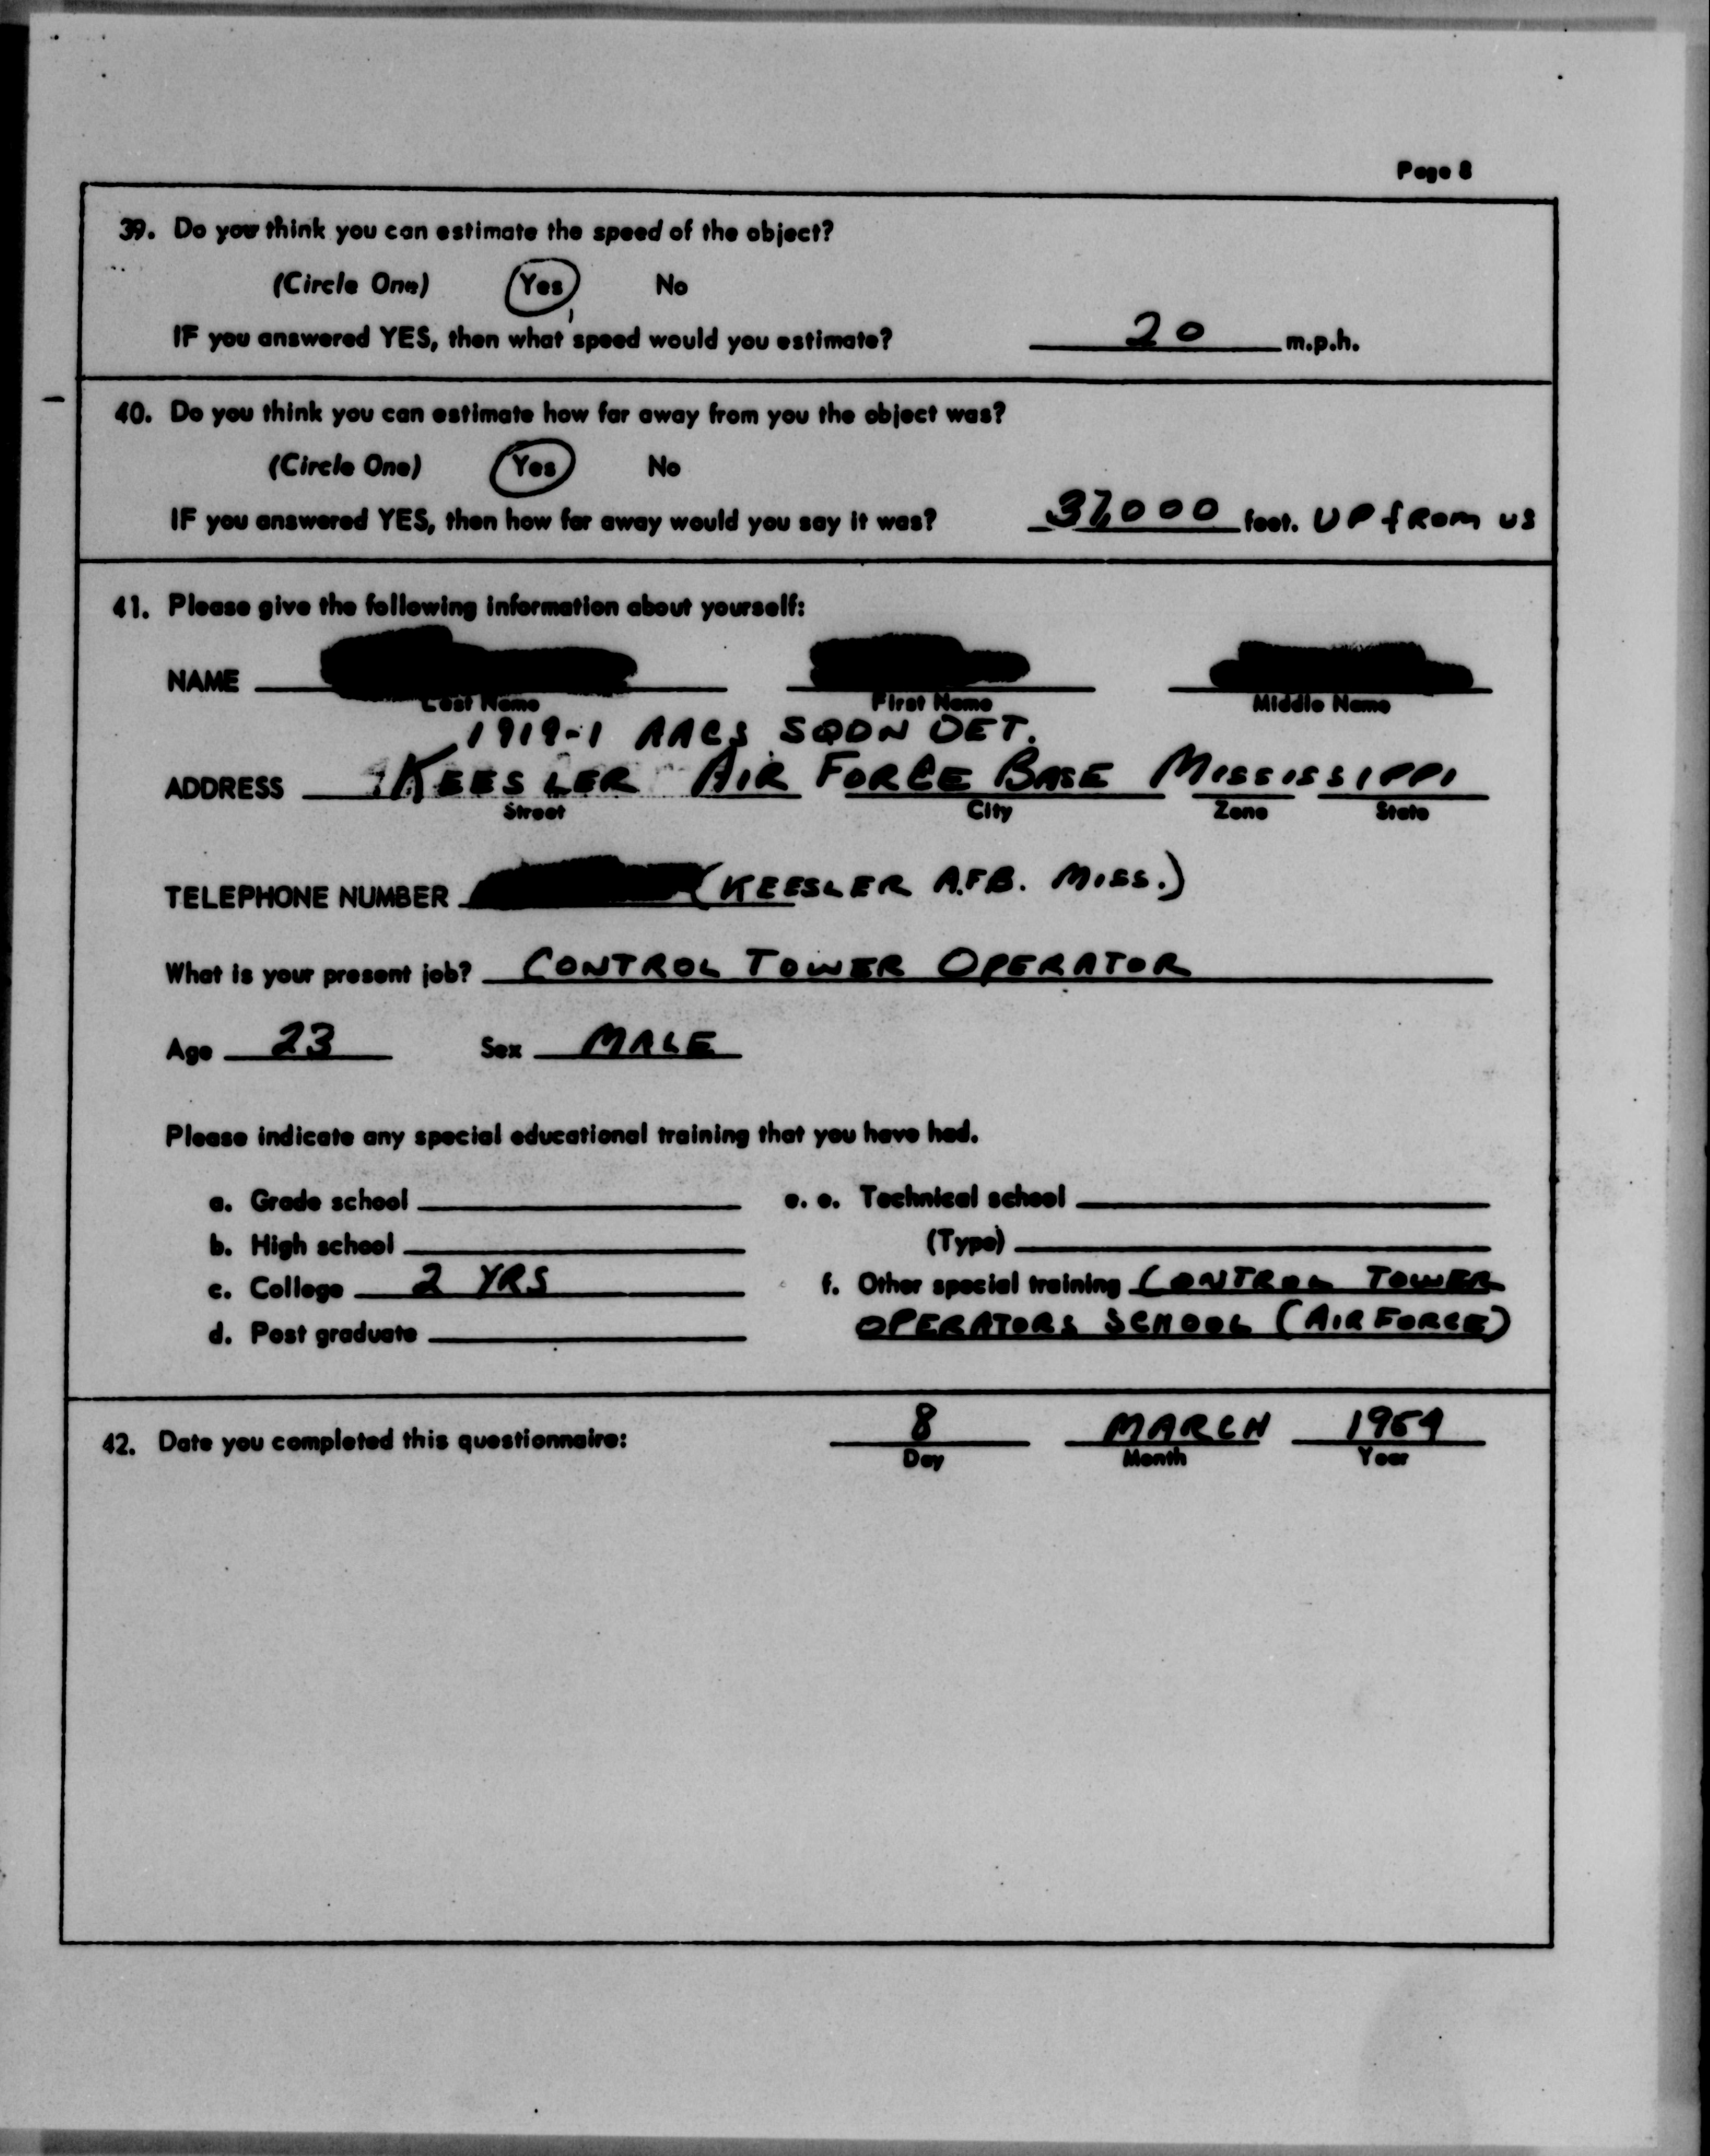 Page 8
39. Do you think you can estimate the speed of the object?
(Circle One) Yes No
IF you answered YES, then what speed would you estimate? 20 m.p.h.
40. Do you think you can estimate how far away from you the object was?
(Circle One) Yes No
IF you answered YES, then how far away would you say it was? feet. UP from us
41. Please give the following information about yourself:
NAME
Last Name First Name Middle Name
1919-1 AACS SQDN DET.
ADDRESS KEESLER AIR FORCE BASE MISSISSIPPI
Street City Zone State
TELEPHONE NUMBER (KEESLER A.F.B. MISS.)
What is your present job? CONTROL TOWER OPERATOR
Age 23 Sex MALE
Please indicate any special educational training that you have had.
a. Grade school e. e. Technical school
b. High school (Type)
c. College 2 YRS f. Other special training CONTROL TOWER
d. Post graduate OPERATORS SCHOOL (AIR FORCE)
42. Date you completed this questionnaire: 8 MARCH
Day Month Year